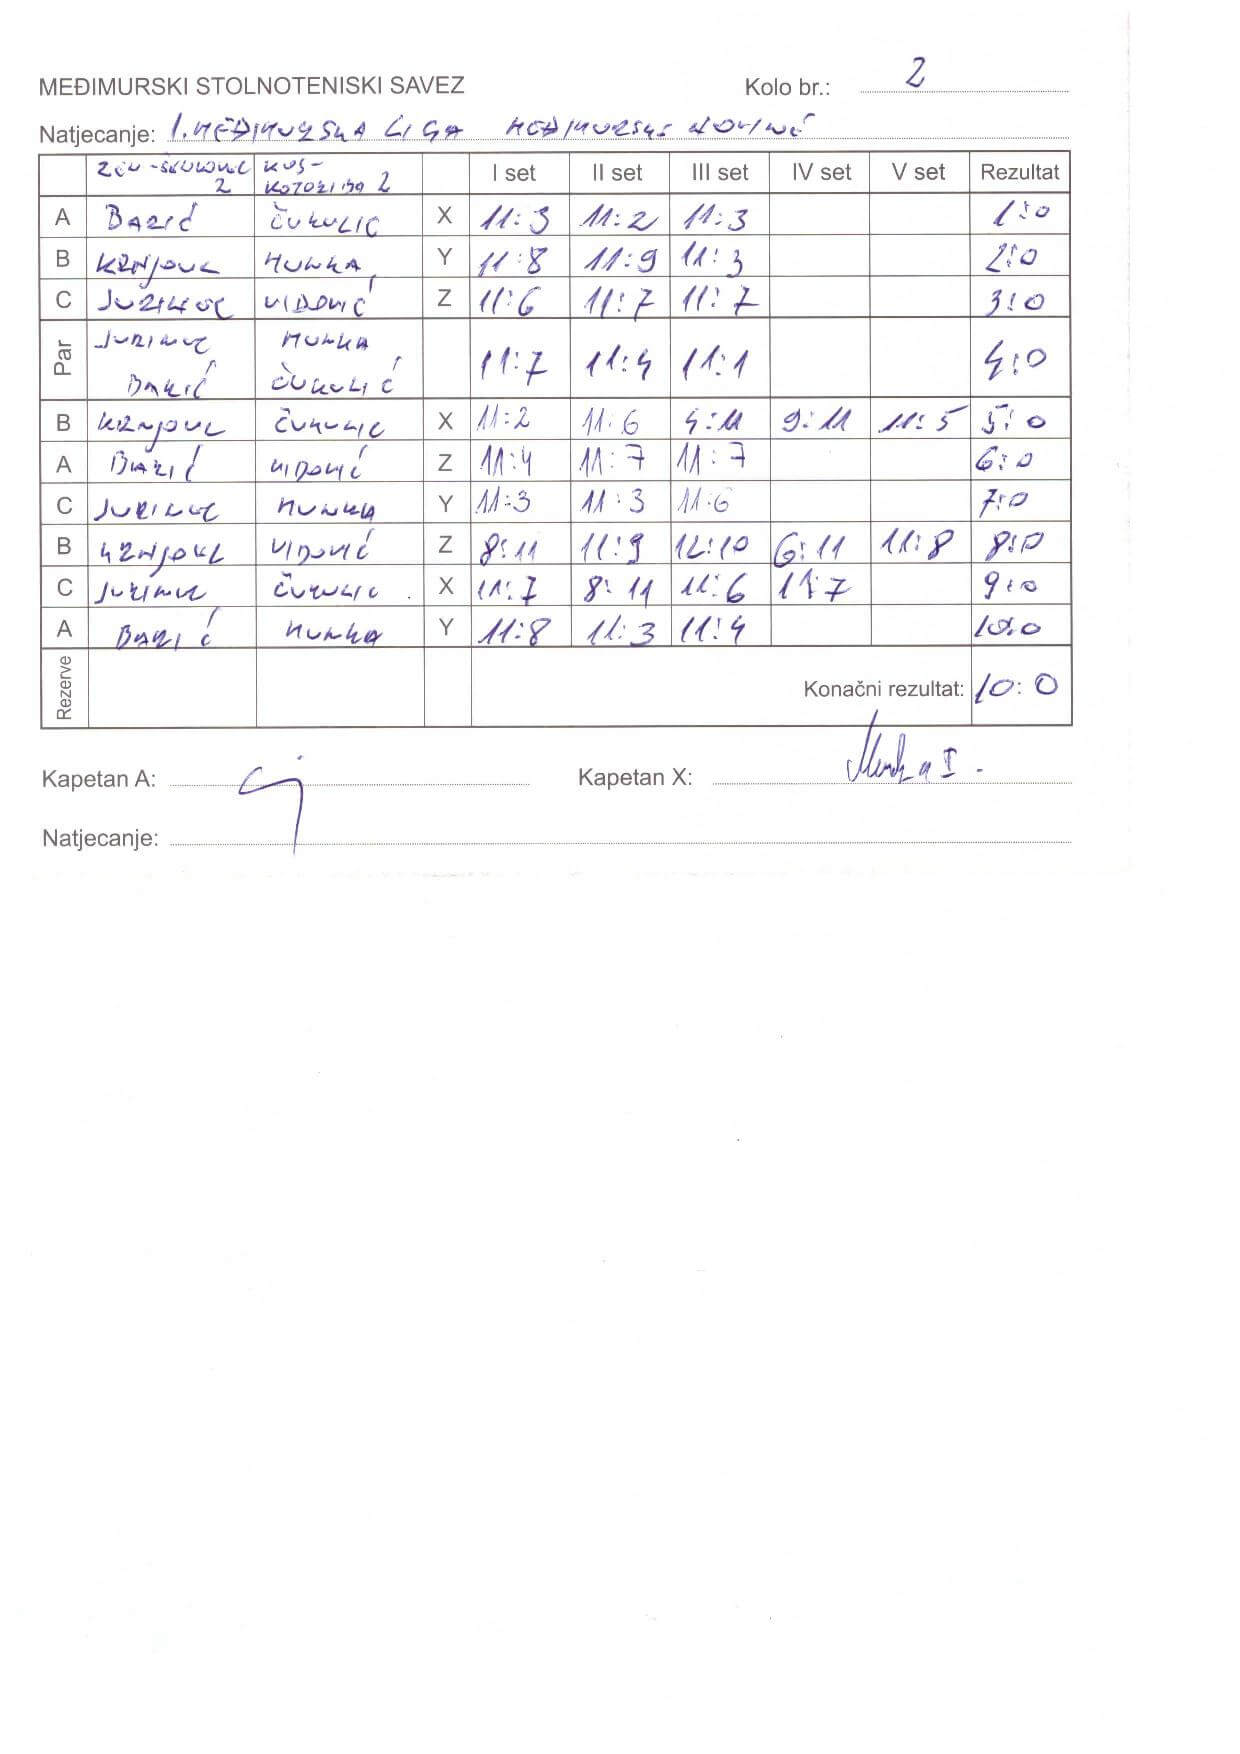 MEĐIMURSKI STOLNOTENISKI SAVEZ Kolo br.: 2
Natjecanje: 1. MEĐIMURSKA LIGA MEĐIMURSKE NOVINE
I set II set III set IV set V set Rezultat
2 KOTORIBA 2
A BARIĆ ČUKULIĆ X 11:3 11:2 11:3 1:0
B KRNJOUL MUNKA Y 11:8 11:9 11:3 2:0
C JURINEC VIDOVIĆ Z 11:6 11:7 11:7 3:0
Par JURINEC MUNKA
BARIĆ ČUKULIĆ 11:7 11:4 11:1 4:0
B KRNJOUL ČUKULIC X 11:2 11:6 4:11 9:11 11:5 5:0
A BARIĆ VIDOVIĆ Z 11:4 11:7 11:7 6:0
C JURINEC MUNKA Y 11:3 11:3 11:6 7:0
B KRNJOUL VIDOVIĆ Z 8:11 11:9 12:10 6:11 11:8 8:0
C JURINEC ČUKULIC X 11:7 8:11 11:6 11:7 9:0
A BARIĆ MUNKA Y 11:8 11:3 11:4 10:0
Rezerve Konačni rezultat: 10:0
Kapetan A: Kapetan X: Munka I.
Natjecanje: